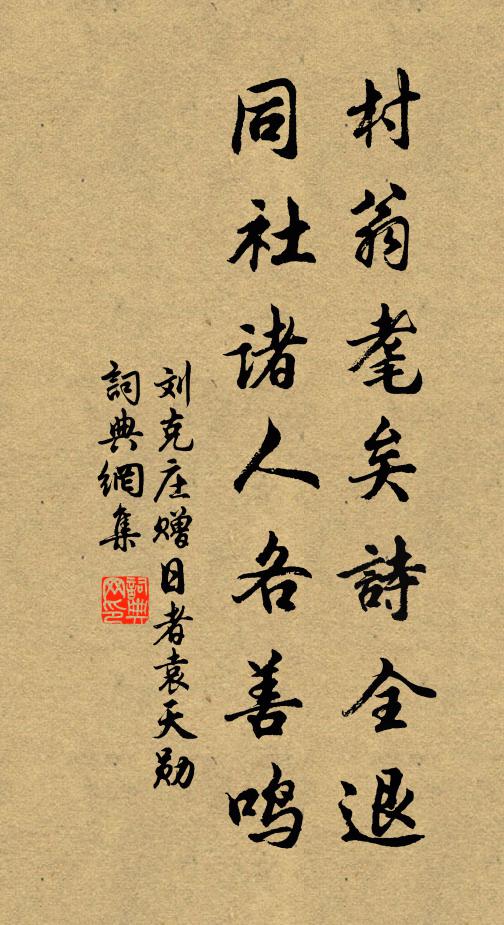 村翁耄矣詩全退
同社诸人各善鸣
刘克庄赠日者袁天勋
詞典網集
詞典网印